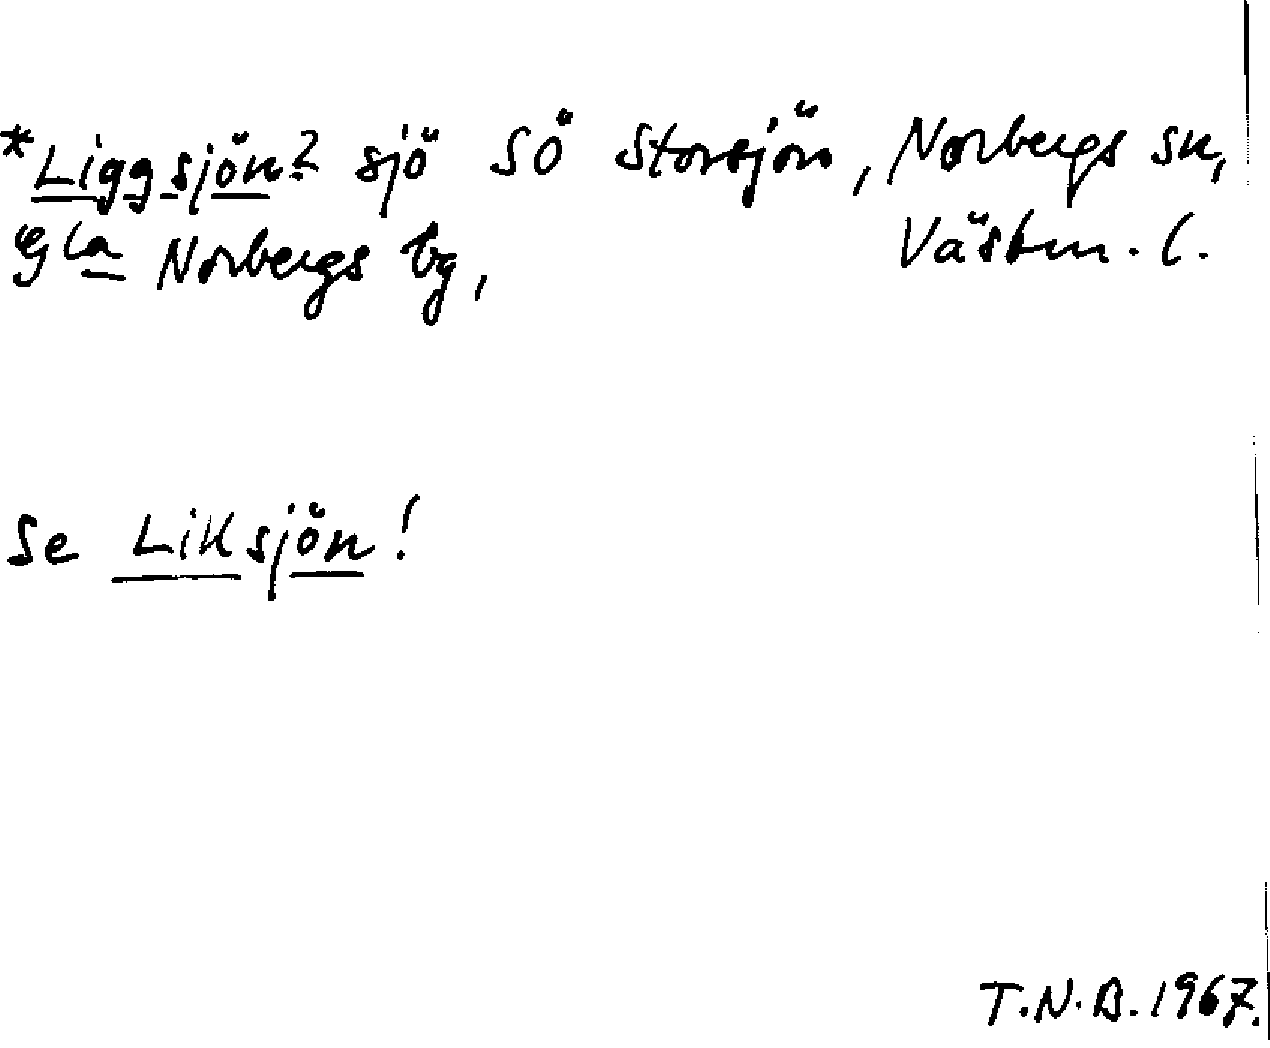 *Liggsjön? sjö SÖ Storsjön, Norbergs sn,
Gla Norbergs bg, Västm. l.
Se Liksjön!
T.N.B. 1967.